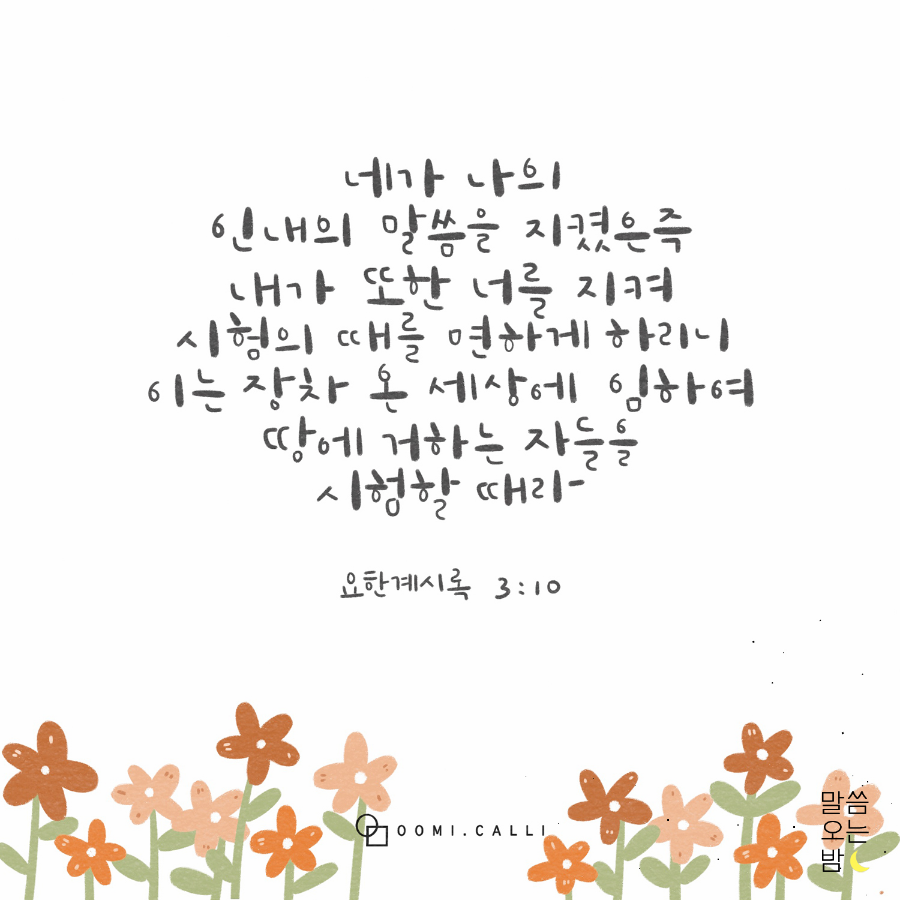 네가 나의
인내의 말씀을 지켰은즉
내가 또한 너를 지켜
시험의 때를 면하게 하리니
이는 장차 온 세상에 임하여
땅에 거하는 자들을
시험할 때라-
요한계시록 3:10
OOMI.CALLI
말씀
오는
밤